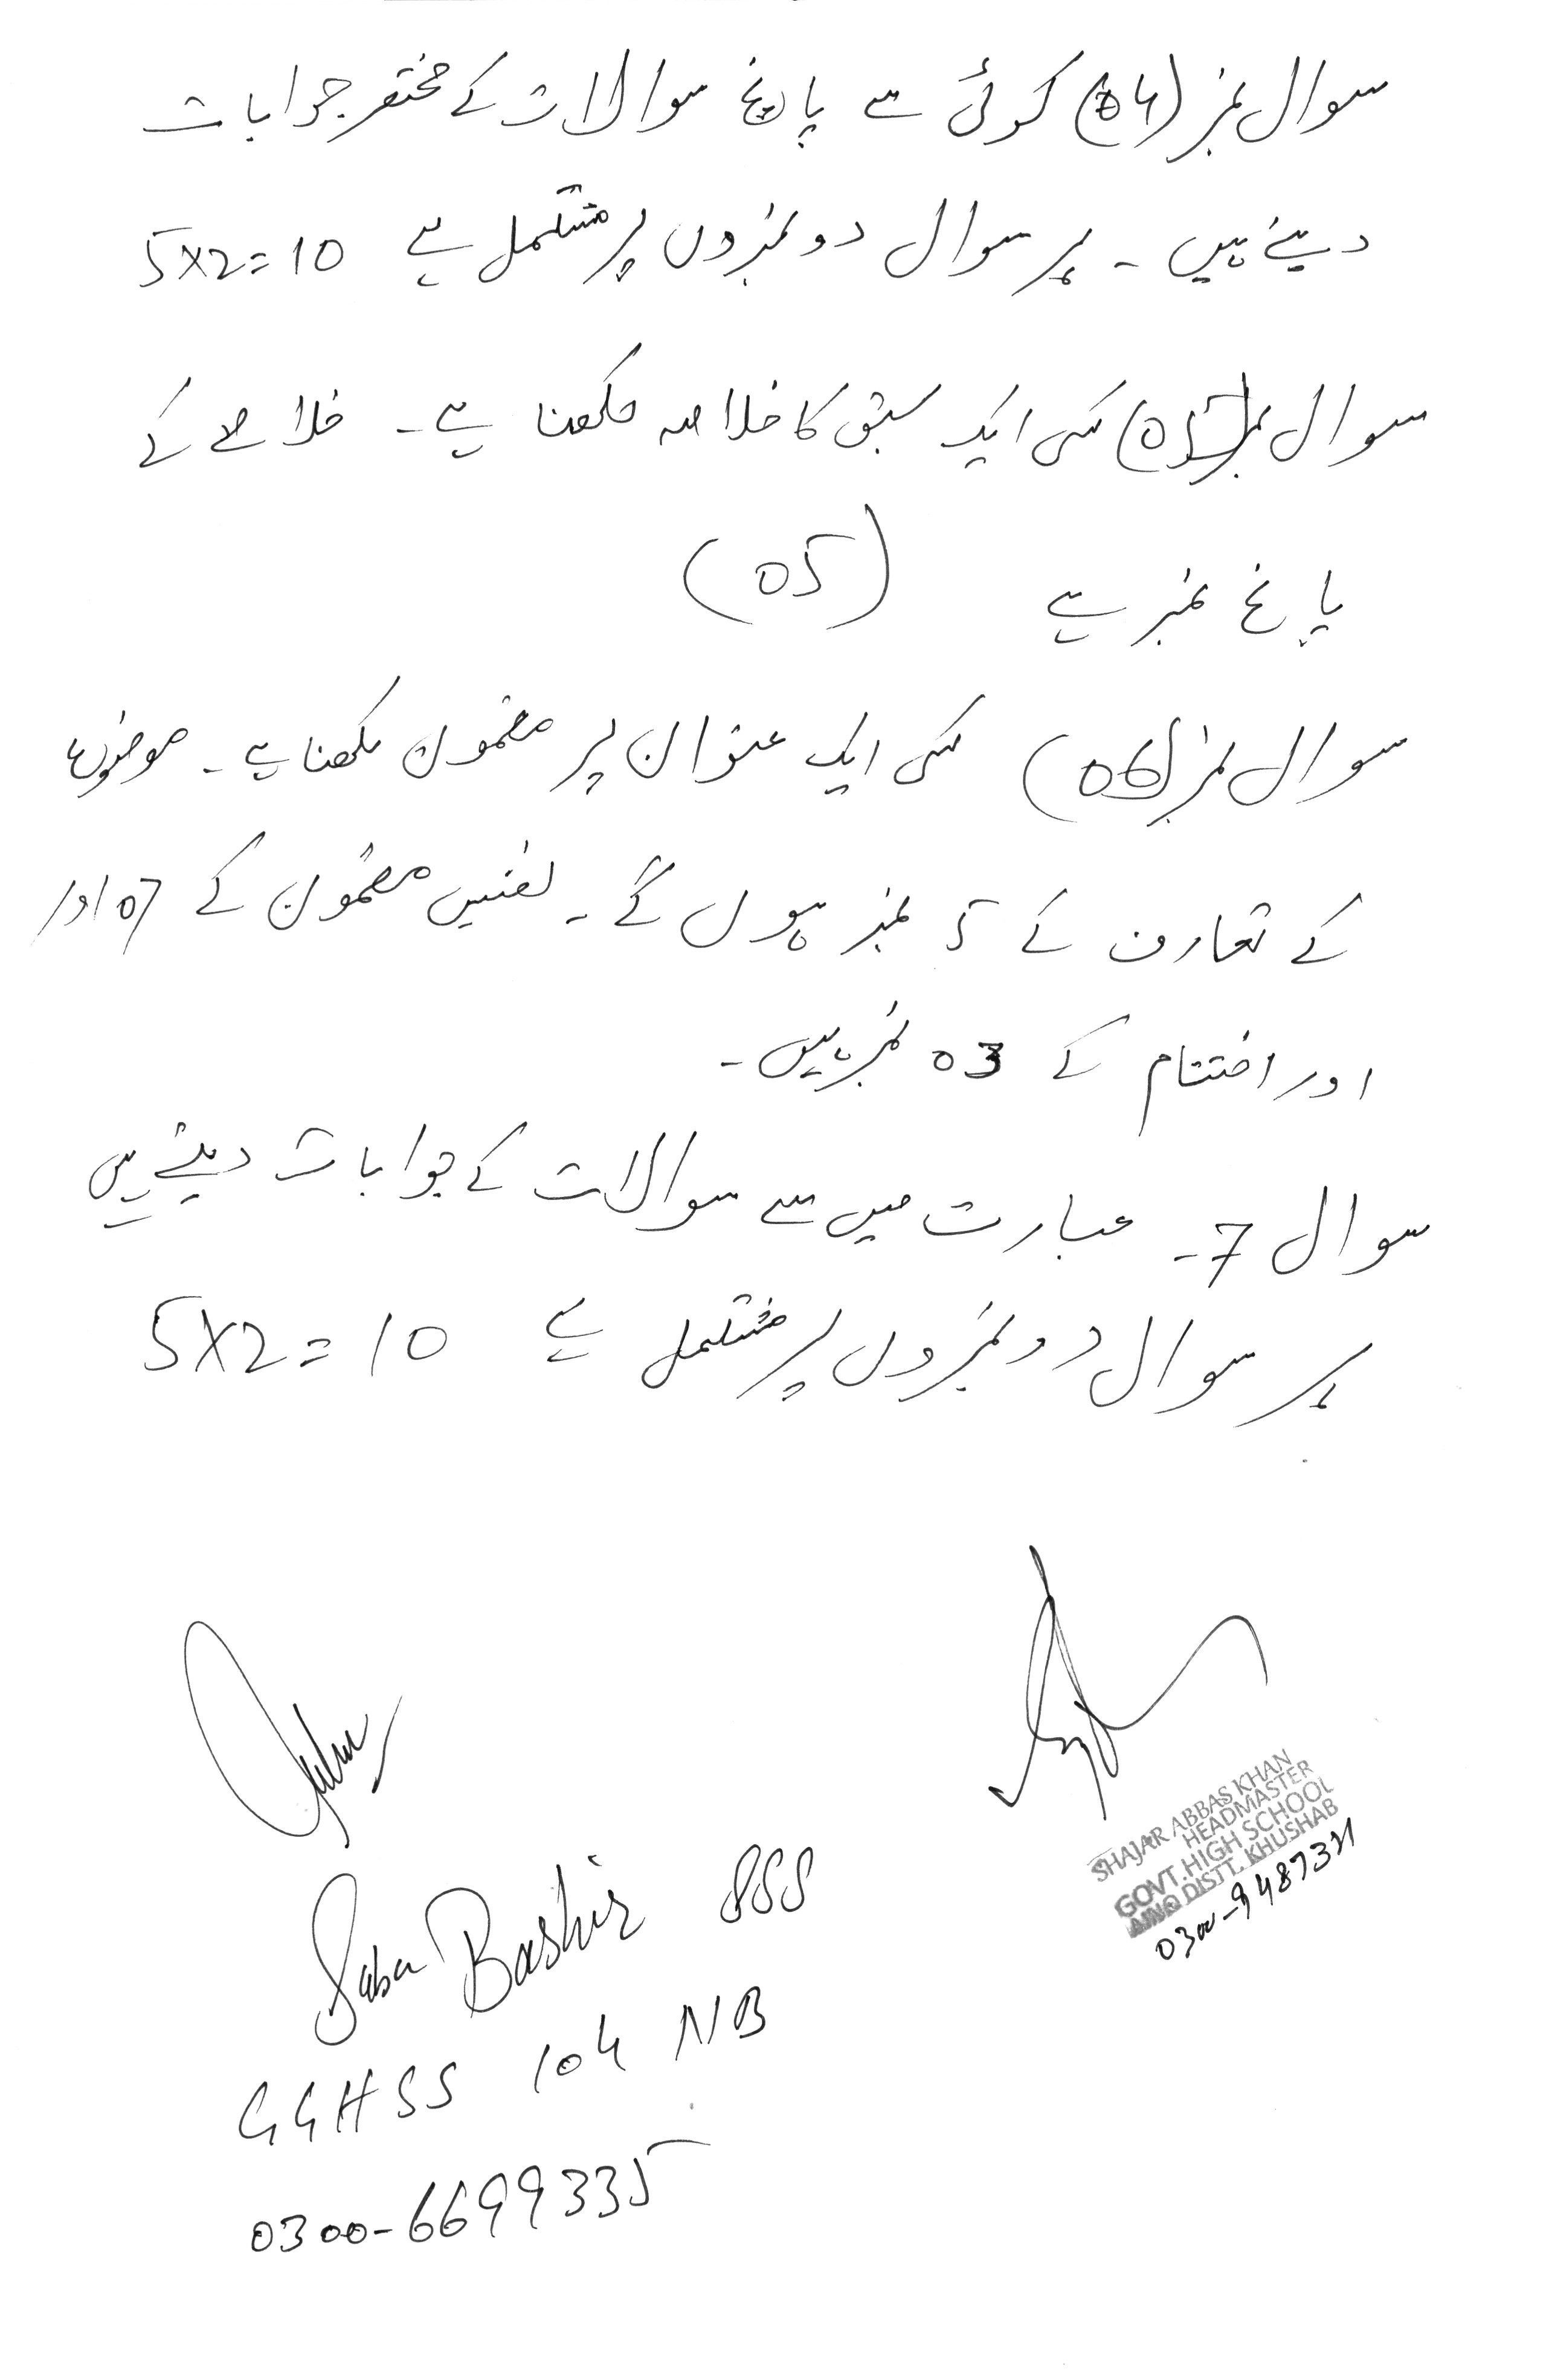 سوال نمبر (04) کوئی سے پانچ سوالات کے مختصر جوابات
دینے ہیں ۔ ہر سوال دو نمبروں پر مشتمل ہے 5x2=10
سوال نمبر (05) کسی ایک سبق کا خلاصہ لکھنا ہے ۔ خلاصے کے
پانچ نمبر ہے (05)
سوال نمبر (06) کسی ایک عنوان پر مضمون لکھنا ہے ۔ موضوع
کے تعارف کے 5 نمبر ہوں گے ۔ نفس مضمون کے 07 اور
اور اختتام کے 03 نمبر ہیں ۔
سوال 7 ۔ عبارت میں سے سوالات کے جوابات دینے ہیں
ہر سوال دو نمبروں پر مشتمل ہے 5X2=10
SHAJAR ABBAS KHAN
HEADMASTER
GOVT. HIGH SCHOOL
DISTT. KHUSHAB
Saba Bashir SSS
GGHSS 104 NB
0300-6699335